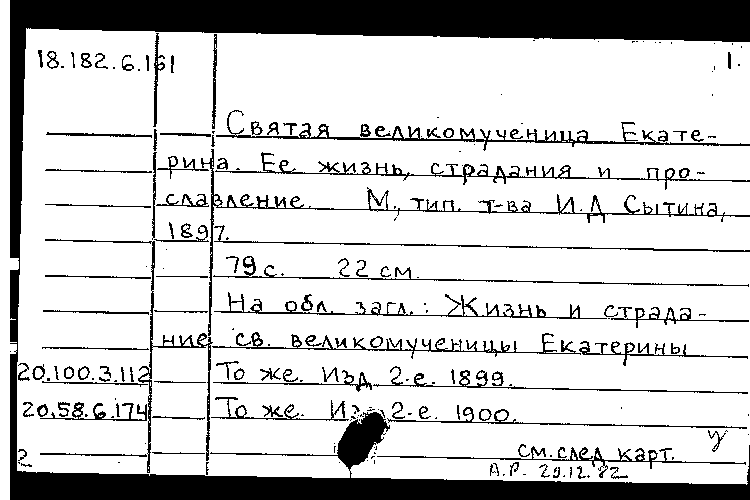 18.182.6.161 1.
Святая великомученица Екате-
рина. Ее жизнь, страдания и про-
славление. М., тип. т-ва И.Д Сытина,
1897.
79 с. 22 см.
На обл. загл.: Жизнь и страда-
ние св. великомученицы Екатерины
20.100.3.112 То же. Изд. 2-е. 1899.
20.58.6.174 То же. Из 2-е. 1900.
см. след карт. у
2 А.Р. 29.12.82